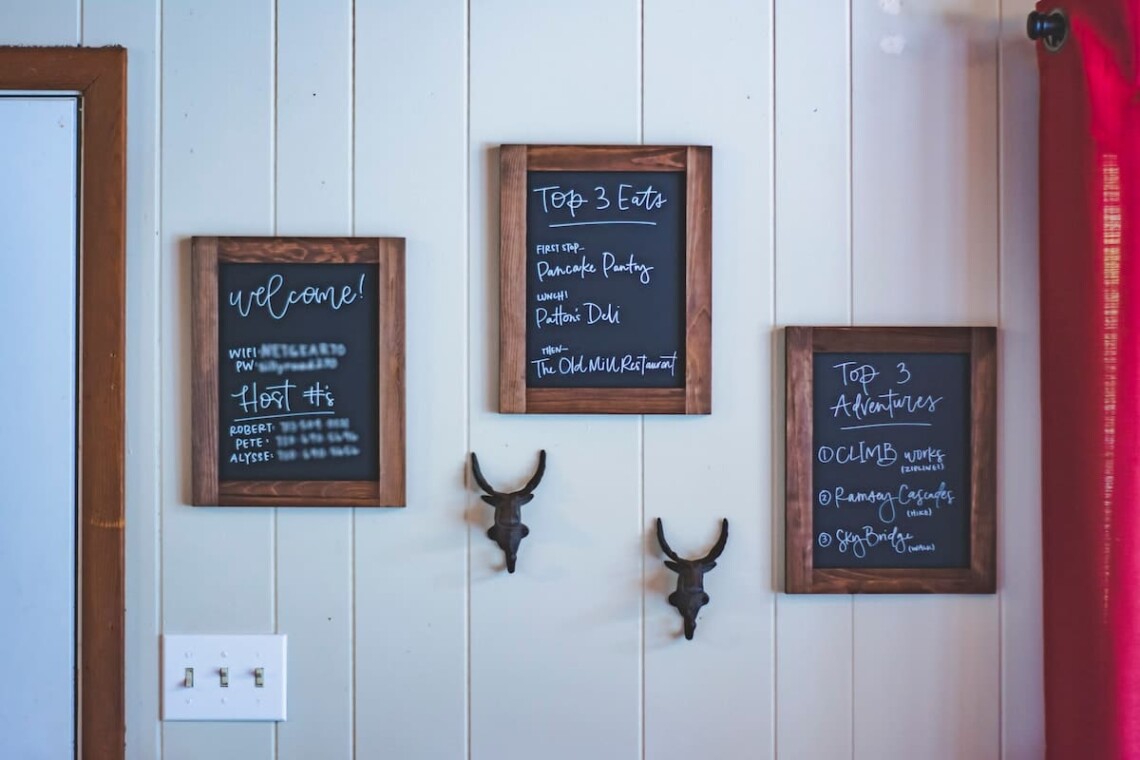 welcome!
WIFI:
PW:
Host #s
ROBERT:
PETE:
ALYSSE:
Top 3 Eats
FIRST STOP...
Pancake Pantry
LUNCH!
Patton's Deli
THEN...
The Old Mill Restaurant
Top 3
Adventures
① CLIMB works
(ZIPLINE!)
② Ramsey Cascades
(HIKE)
③ SkyBridge
(WALK)